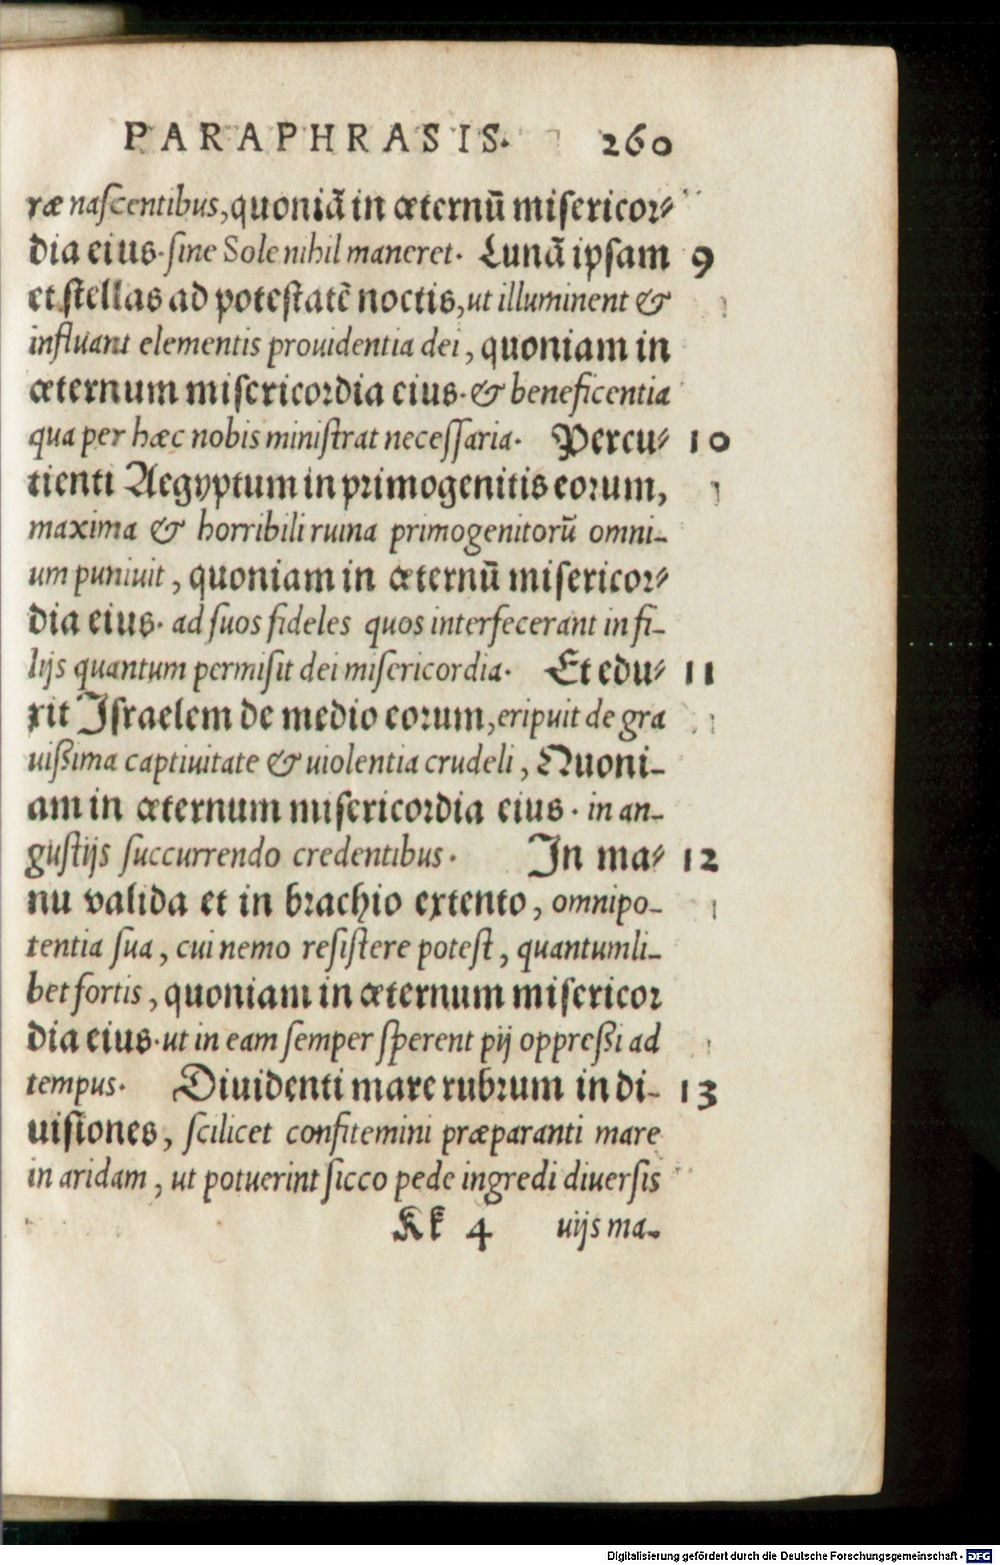 PARAPHRASIS. 260
ræ nascentibus, quoniā in æternū misericor⸗
dia eius. sine Sole nihil maneret. Lunā ipsam 9
et stellas ad potestatē noctis, ut illuminent &
influant elementis prouidentia dei, quoniam in
æternum misericordia eius. & beneficentia
qua per hæc nobis ministrat necessaria. Percu⸗ 10
tienti Aegyptum in primogenitis eorum,
maxima & horribili ruina primogenitorū omni-
um puniuit, quoniam in æternū misericor⸗
dia eius. ad suos fideles quos interfecerant in fi-
lijs quantum permisit dei misericordia. Et edu⸗ 11
xit Israelem de medio eorum, eripuit de gra
uißima captiuitate & uiolentia crudeli, Quoni-
am in æternum misericordia eius. in an-
gustijs succurrendo credentibus. In ma⸗ 12
nu valida et in brachio extento, omnipo-
tentia sua, cui nemo resistere potest, quantumli-
bet fortis, quoniam in æternum misericor
dia eius. ut in eam semper sperent pij oppreßi ad
tempus. Diuidenti mare rubrum in di- 13
uisiones, scilicet confitemini præparanti mare
in aridam, ut potuerint sicco pede ingredi diuersis
Kk 4 uijs ma-
Digitalisierung gefördert durch die Deutsche Forschungsgemeinschaft - DFG